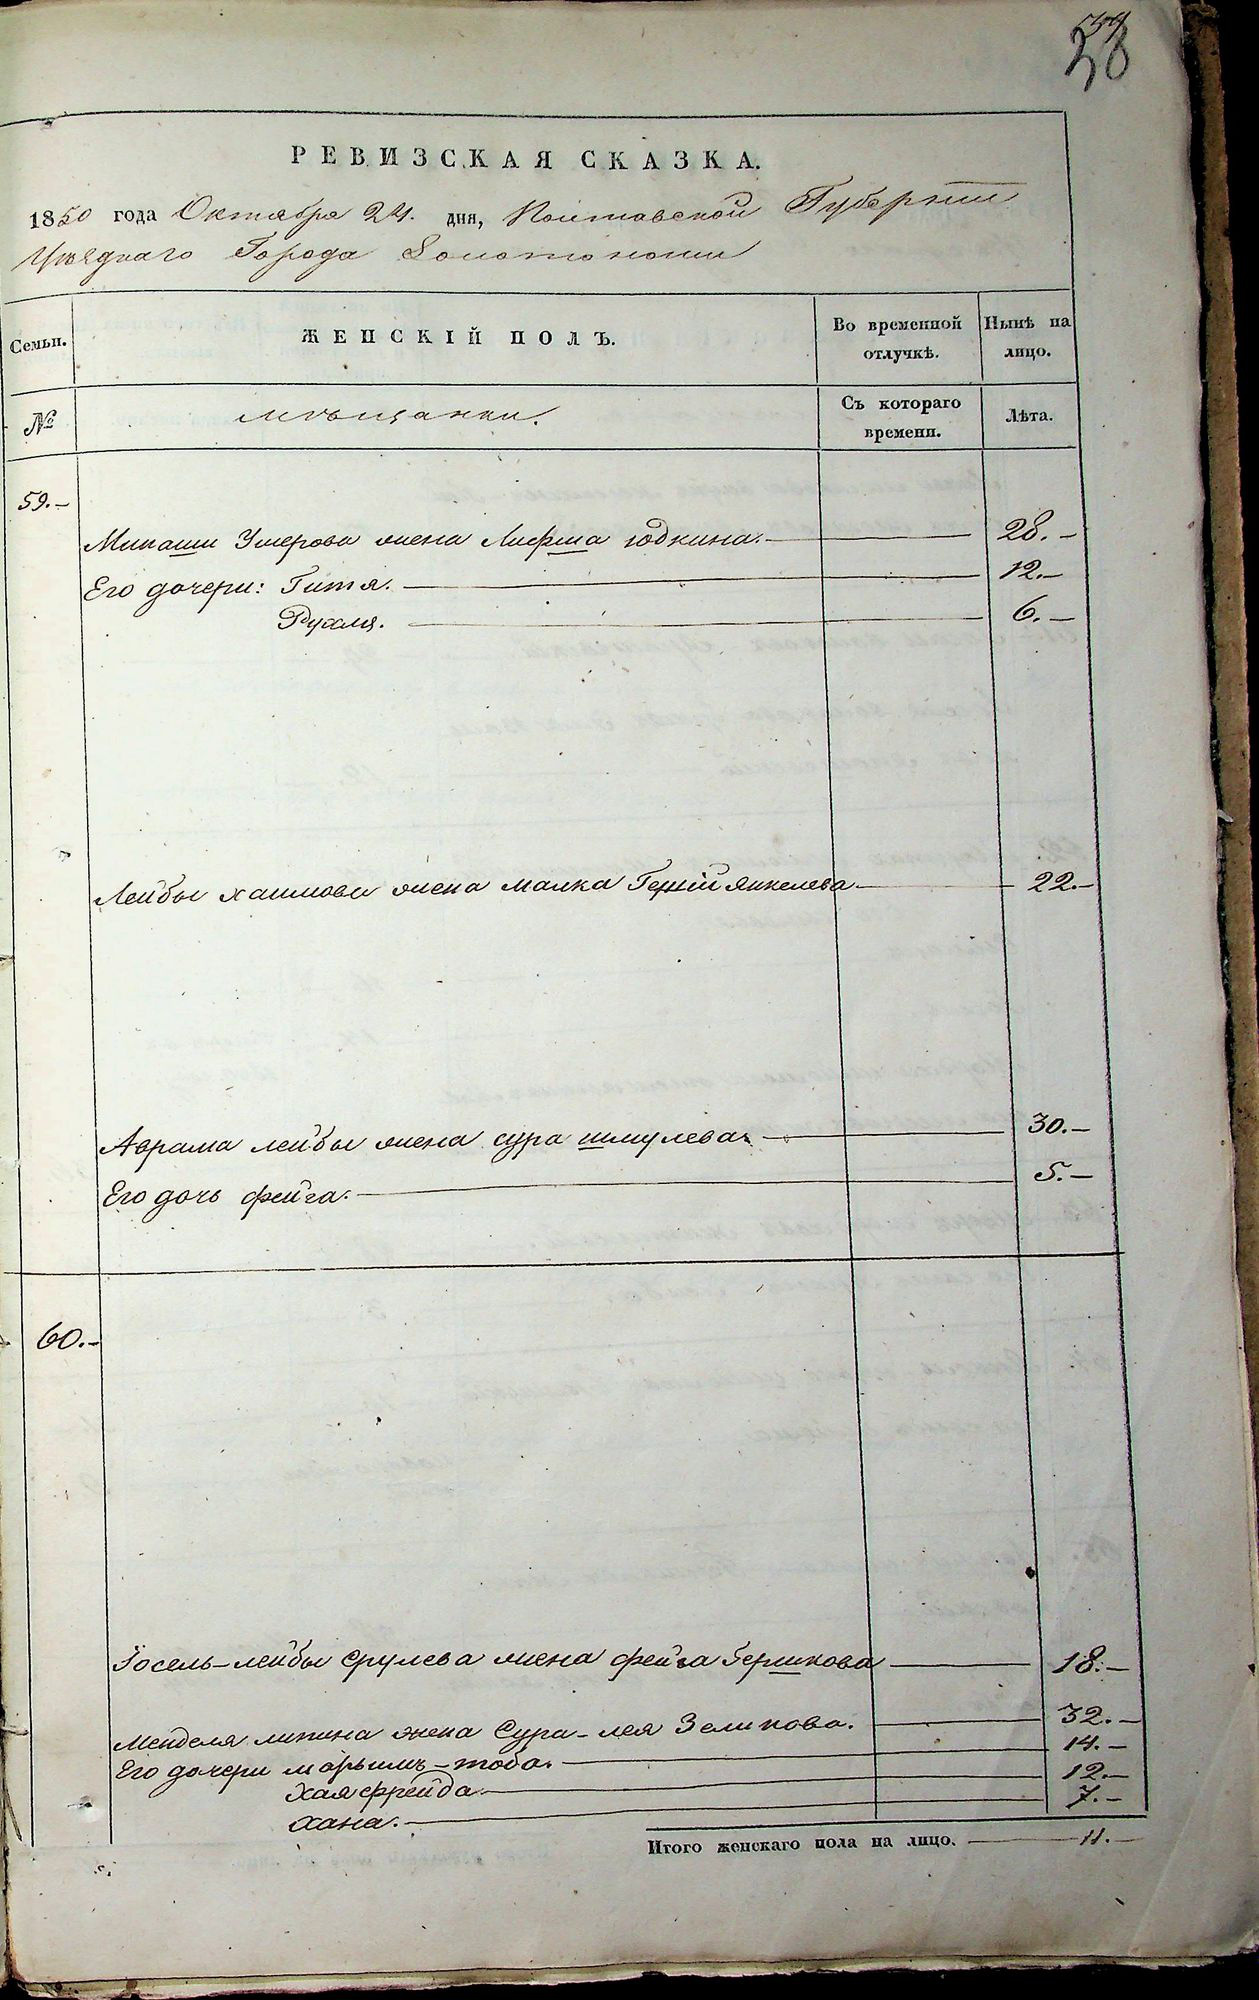 59
38
РЕВИЗСКАЯ СКАЗКА.
1850 года Октября 24. дня, Полтавской Губернии
Уѣзднаго Города Золотоноши
Семьи. ЖЕНСКІЙ ПОЛЪ. Во временной отлучкѣ. Нынѣ на лицо.
№ мѣщанки. Съ котораго времени. Лѣта.
59.-
жена Юдкина. 28.-
Его дочери: Гитя. 12.-
Рухля. 6.-
Лейбы Хаимова жена Малка Янкелева 22.-
Аврама Лейбы жена Сура Шмулева 30.-
Его дочь Фейга. 5.-
60.-
Іосель-Лейбы Срулева жена Фейга Гершкова 18.-
Менделя Липина жена Сура-Лея Зеликова. 32.-
Его дочери Марьимъ-Тоба. 14.-
Хая Фрейда 12.-
Хана. 7.-
Итого женскаго пола на лицо. 11.-